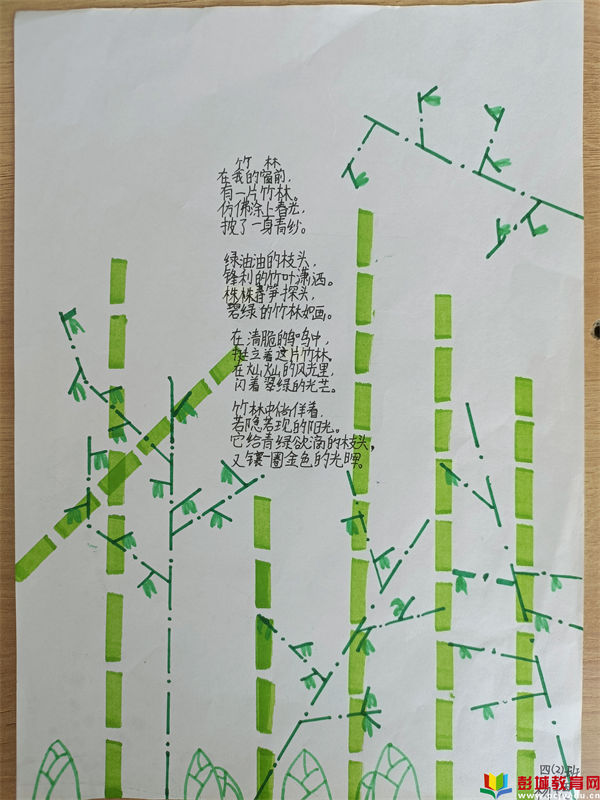 竹 林
在我的窗前，
有一片竹林。
仿佛涂上春光，
披了一身青纱。
绿油油的枝头，
锋利的竹叶潇洒。
株株春笋探头，
碧绿的竹林如画。
在清脆的鸟鸣中，
挺立着这片竹林。
在灿灿的风光里，
闪着翠绿的光芒。
竹林中徜徉着，
若隐若现的阳光。
它给青绿欲滴的枝头，
又镶一圈金色的光晕。
四(2)班
彭城教育网